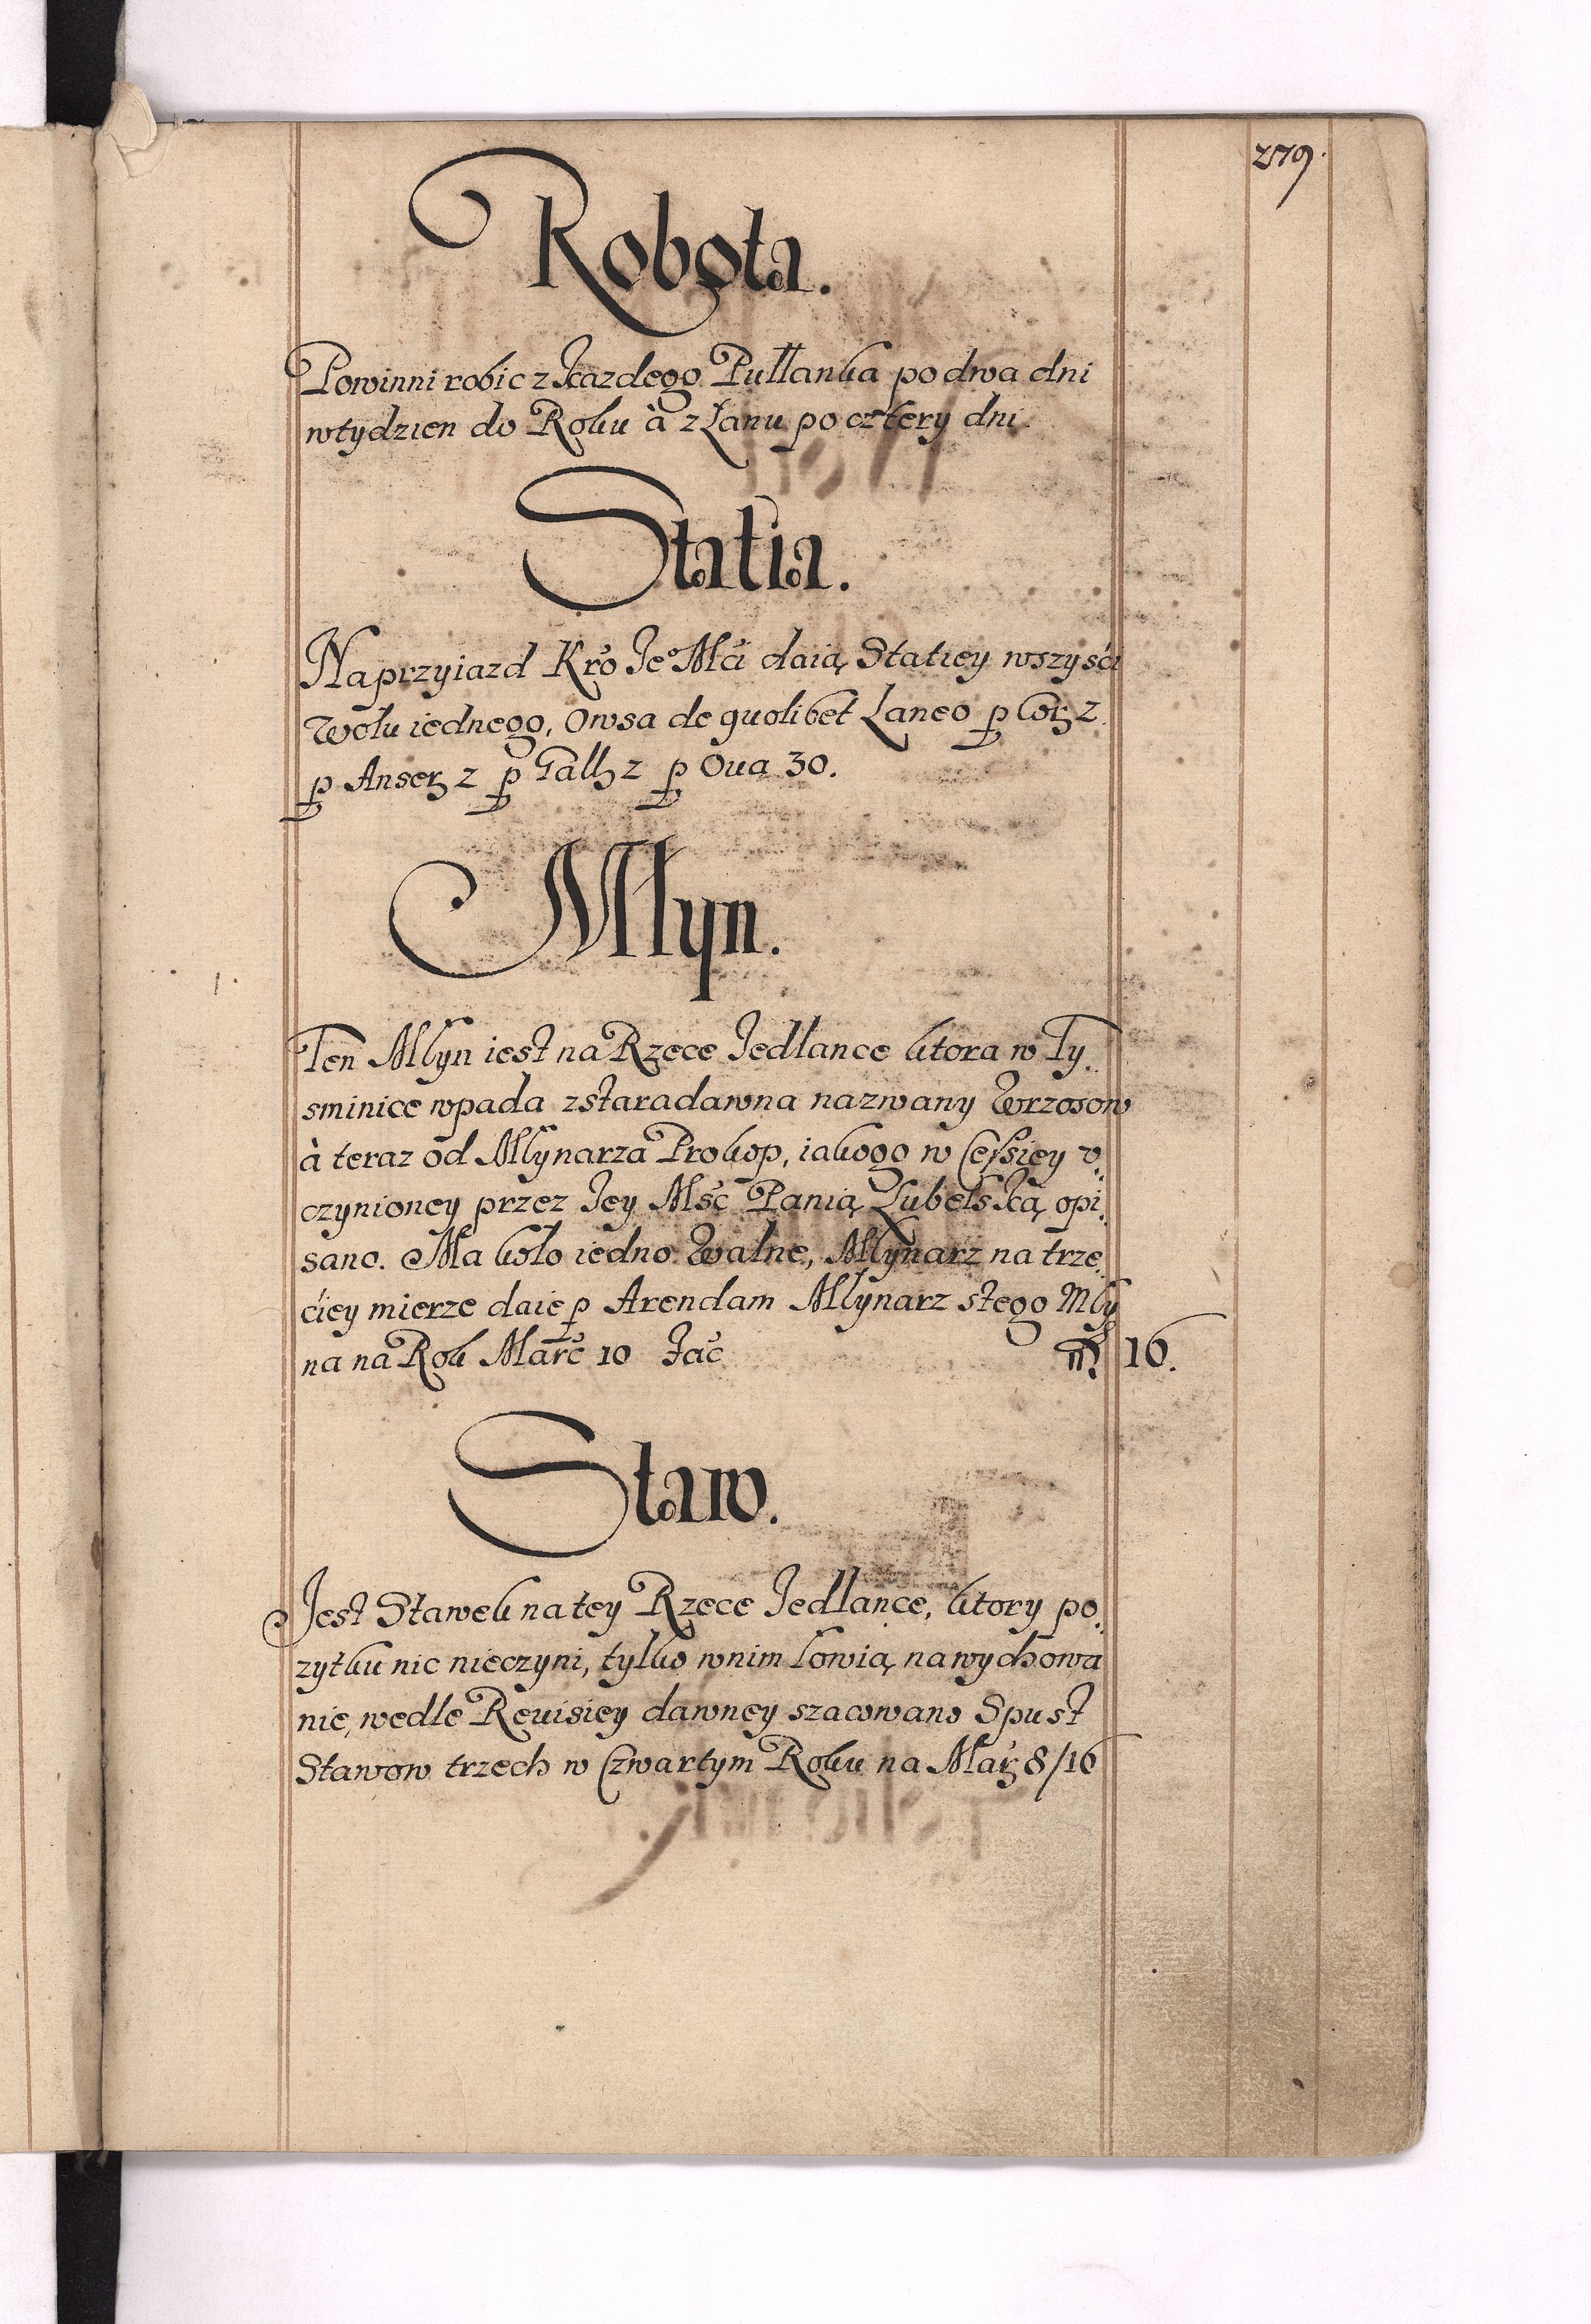 279.
Robota.
Powinni robic z kazdego Pułłanka po dwa dni
w tydzien do Roku à z Łanu po cztery dni.
Statia.
Na przyiazd Kro Jeo Mći daią Statiey wszyśći
Wołu iednego, Owsa de quolibet Laneo p Cor 2
p Anser 2 p Gall 2 p Oua 30.
Młyn.
1.
Ten Młyn iest na Rzece Jedlance ktora w Ty
sminice wpada z staradawna nazwany Wrzosow
à teraz od Młynarza Prokop, iakogo w Cessiey v
czynioney przez Jey Mść Panią Lubelską opi
sano. Ma koło iedno Walne, Młynarz na trze
ćiey mierze daie p Arendam Młynarz z tego Mły
na na Rok Marc 10 fac 16.
Staw.
Jest Stawek na tey Rzece Jedlance, ktory po
zytku nic nieczyni, tylko w nim łowią na wychowa
nie, wedle Reuisiey dawney szacowano Spust
Stawow trzech w Czwartym Roku na Mar 8/16